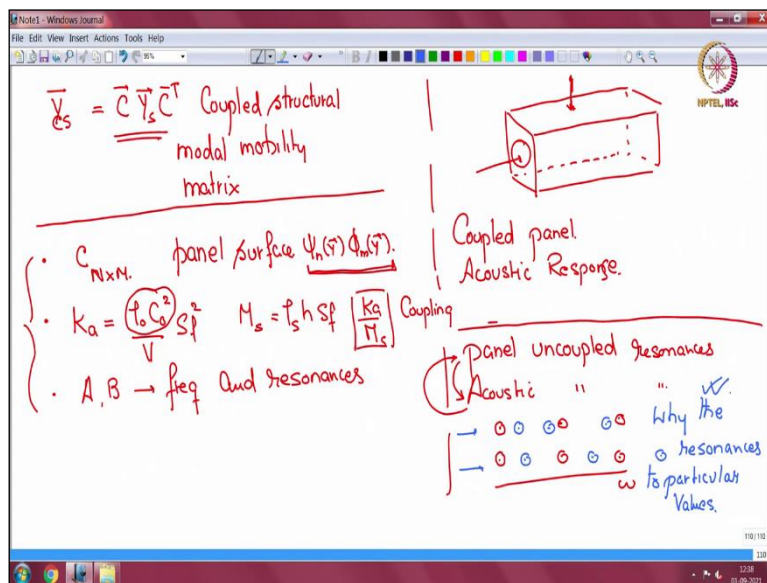 Note1 - Windows Journal
File Edit View Insert Actions Tools Help
95%
B I
NPTEL, IISc
Y_cs = C Y_s C^T Coupled structural
modal mobility
matrix
· C_N×M. panel surface ψ_n(y) φ_m(y).
· Ka = ρ_0 C_0^2 / V S_f^2 M_s = ρ_s h S_f Ka / M_s Coupling
· A, B → freq and resonances
Coupled panel.
Acoustic Response.
panel uncoupled resonances
Acoustic " "
Why the
resonances
ω to particular
Values.
110 / 110
110
12:38
01-09-2021